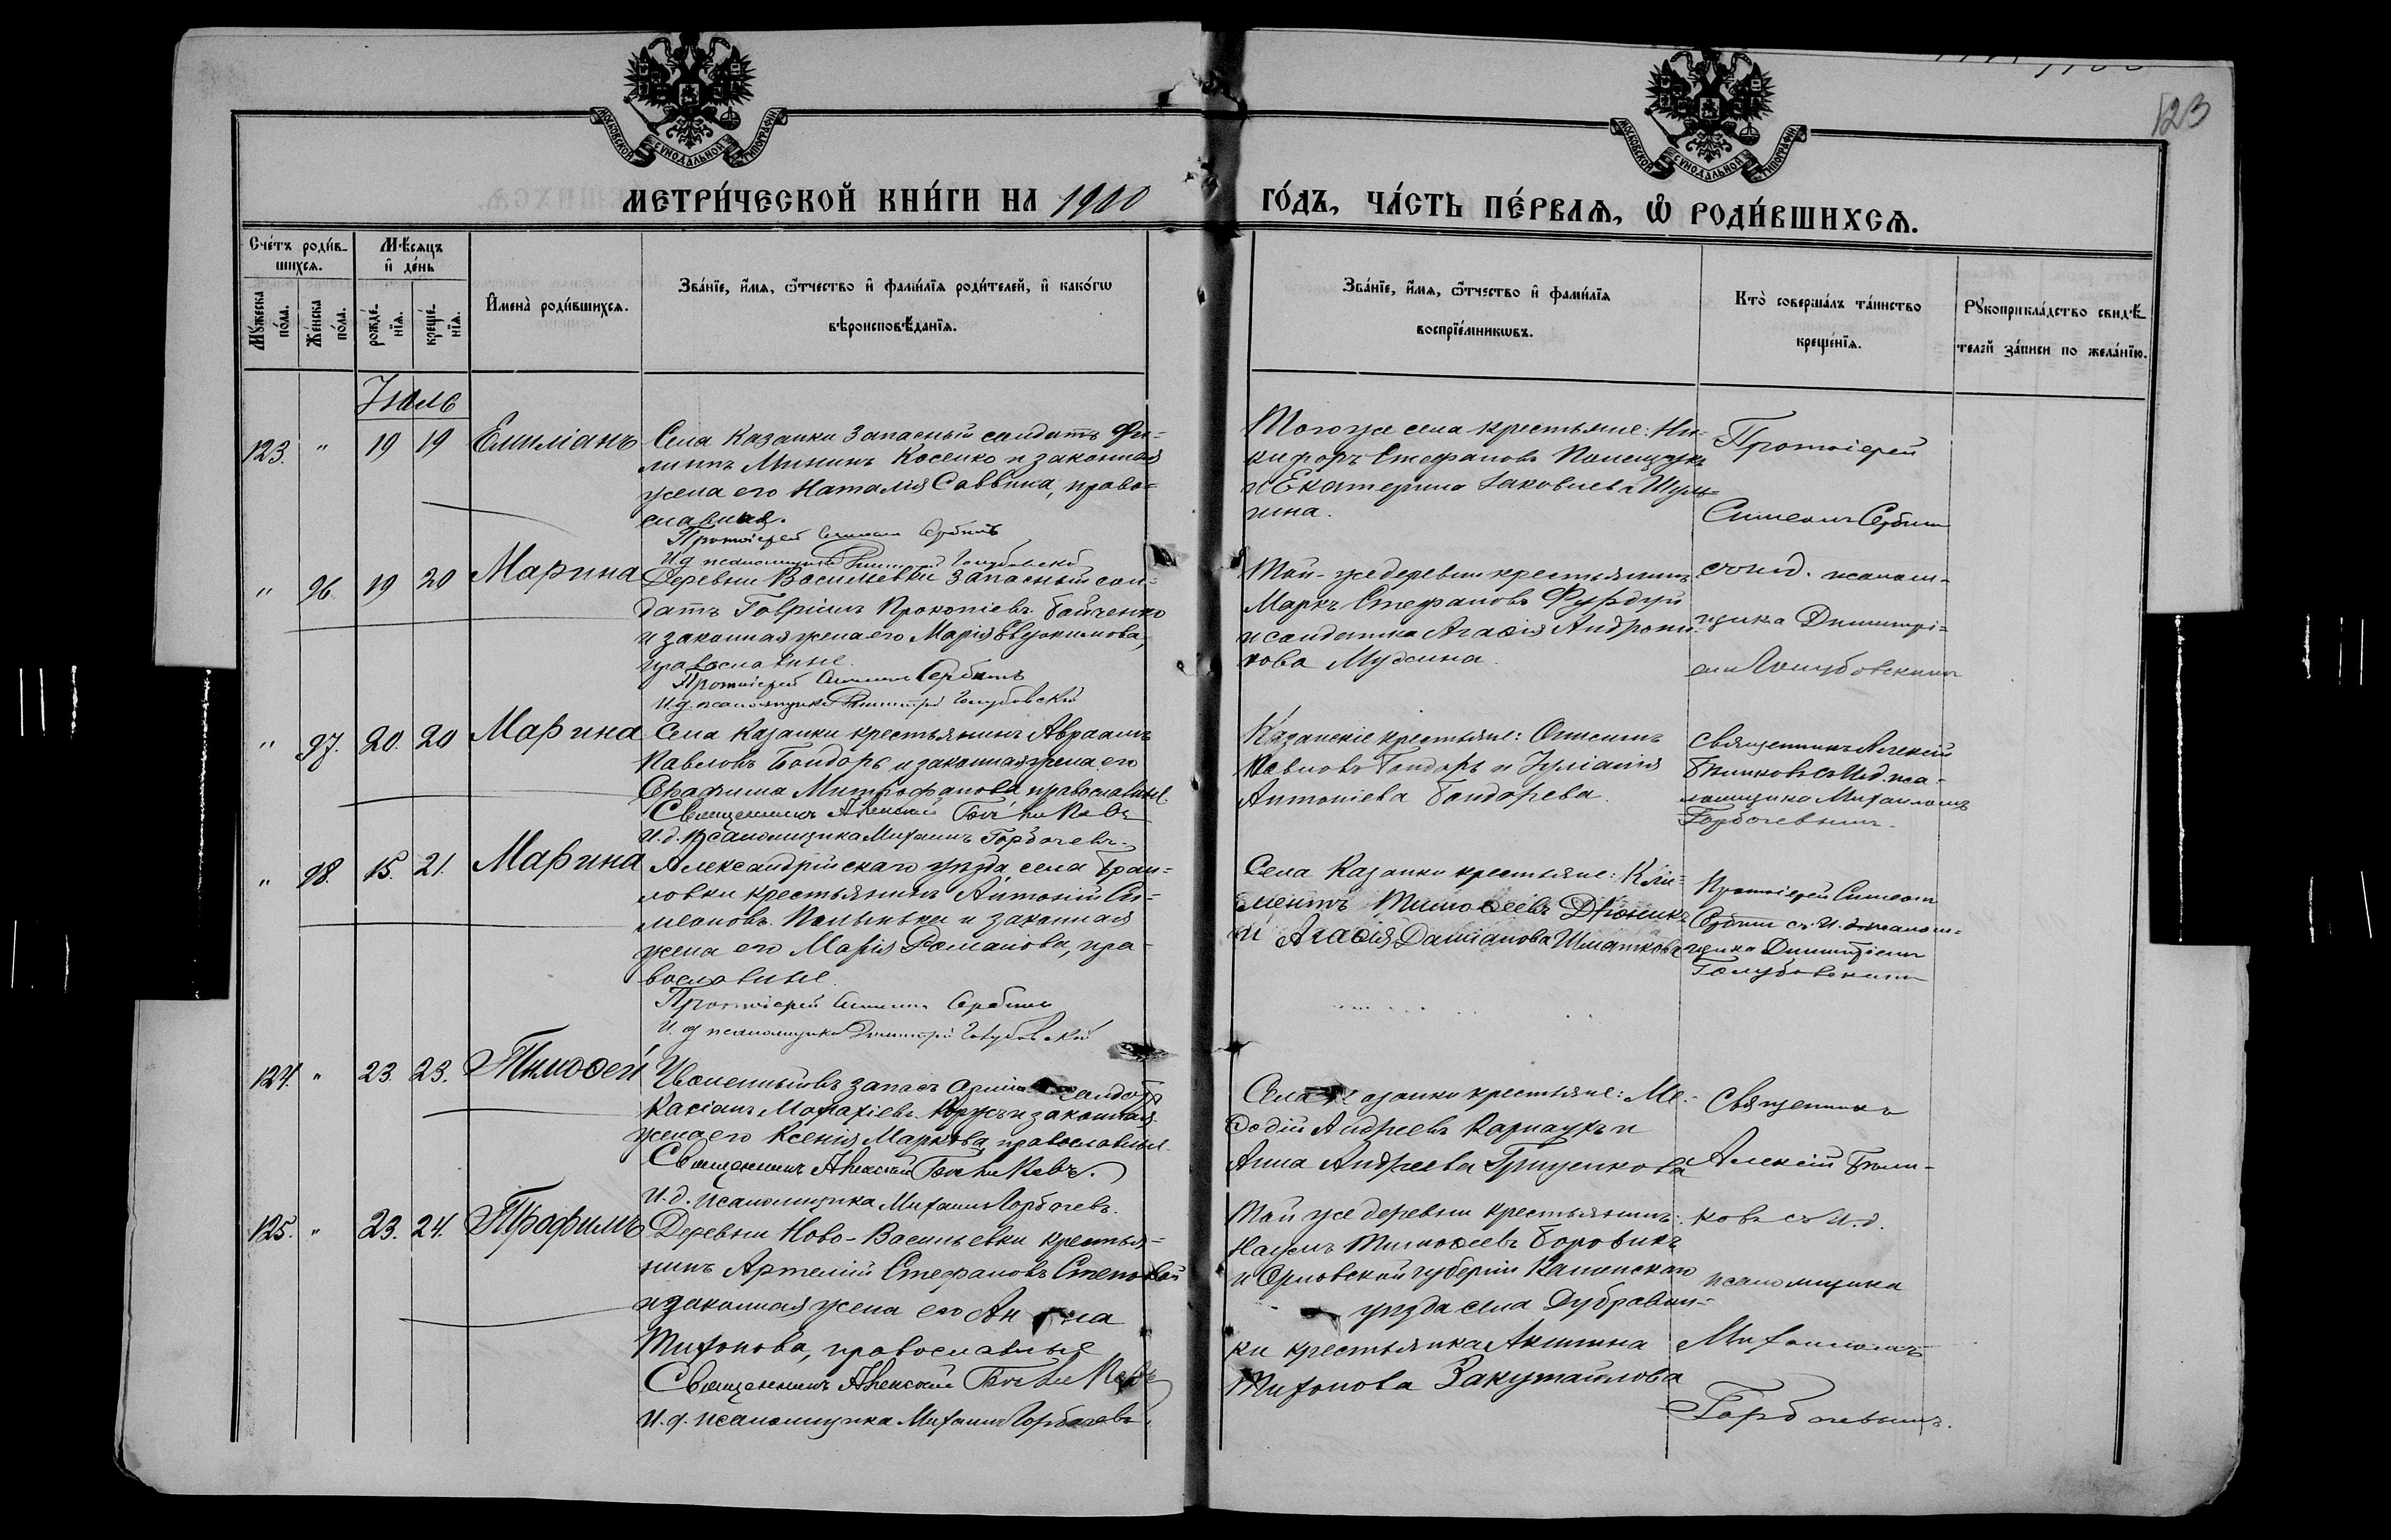 123
МОСКОВСКОЙ СУНОДАЛЬНОЙ ТИПОГРАФІИ
МОСКОВСКОЙ СУНОДАЛЬНОЙ ТИПОГРАФІИ
МЕТРИ́ЧЕСКОЙ КНИ́ГИ НА 1900
ГО́ДЪ, ЧА́СТЬ ПЕ́РВАѦ, Ѽ РОДИ́ВШИХСѦ.
Сче́тъ роди́в-
шихсѧ.
Мѣ́сѧцъ
и де́нь
Мꙋ́жеска по́ла.
Же́нска по́ла.
рожде́-нїѧ.
креще́-нїѧ.
И҆мена̀ роди́вшихсѧ.
Зва́нїе, и҆́мѧ, ѻ҆́тчество и҆ фами́лїѧ роди́телей, и҆ како́гѡ
вѣроисповѣ́данїѧ.
Зва́нїе, и҆́мѧ, ѻ҆́тчество и҆ фами́лїѧ
воспрїе́мникѡвъ.
Кто̀ соверша́лъ та́инство
креще́нїѧ.
Рꙋкоприкла́дство свидѣ́-
телей за́писи по жела́нїю.
Іюль
123. " 19 19 Емиліанъ
Села Казанки запасный солдатъ Фи-
липпъ Мининъ Косенко и законная
жена его Наталія Саввина, право-
славная.
Протоіерей Симеонъ Сербинъ
И.д. псаломщика Димитрій Голубовскій
Того же села крестьяне: Ни-
кифоръ Стефановъ Полещукъ
и Екатерина Іаковлева Шуль-
гина.
Протоіерей
Симеонъ Сербинъ
" 96. 19 20 Марина
Деревни Васильевки запасный сол-
датъ Гавріилъ Прокопіевъ Бойченко
и законная жена его Марія Евдокимова,
православные.
Протоіерей Симеонъ Сербинъ
И.д. псаломщика Димитрій Голубовскій
Той-же деревни крестьянинъ
Маркъ Стефановъ
и солдатка Агафія Андрони-
кова
съ и.д. псалом-
щика Димитрі-
емъ Голубовскимъ
" 97. 20. 20 Марина
Села Казанки крестьянинъ Авраамъ
Павловъ Бондарь и законная жена его
Серафима Митрофанова православные
Священникъ Алексій
И.д. Псаломщика Михаилъ Горбачевъ.
Казанскіе крестьяне: Онисимъ
Павловъ Бондарь и Іуліанія
Антоніева Бондарева.
Священникъ Алексій
съ И.д. пса-
ломщика Михаиломъ
Горбачевымъ.
" 98. 15. 21. Марина
Александрійскаго уѣзда, села Бран-
ловки крестьянинъ Антоній Си-
меоновъ и законная
жена его Марія Романова, пра-
вославные.
Протоіерей Симеонъ Сербинъ
И.д. псаломщика Димитрій Голубовскій
Села Казанки крестьяне: Кли-
ментъ Тимоѳеевъ
и Агаѳія Даміанова Шматкова
Протоіерей Симеонъ
Сербинъ съ И.д. псалом-
щика Димитріемъ
Голубовскимъ
124. " 23. 23. Тимоѳей
Уволенный въ запасъ арміи солдатъ
Касіанъ и законная
жена его Ксенія Маркова, православные.
Священникъ Алексій
И.д. псаломщика Михаилъ Горбачевъ.
Села Казанки крестьяне: Ме-
ѳодій Андреевъ Карнаухъ и
Анна Андреева Гриценкова
Священникъ
Алексій
125. " 23. 24. Трофимъ
Деревни Ново-Васильевки крестья-
нинъ Артемій Стефановъ Степовой
и законная жена его Анна
Тихонова, православные
Священникъ Алексій
И.д. псаломщика Михаилъ Горбачевъ.
Той же деревни крестьянинъ:
Наумъ Тимоѳеевъ Боровикъ
и Орловской губерніи
уѣзда села Дубровин-
ки крестьянка Акилина
Тихонова Закутайлова
ковъ съ И.д.
псаломщика
Михаиломъ
Горбачевымъ.